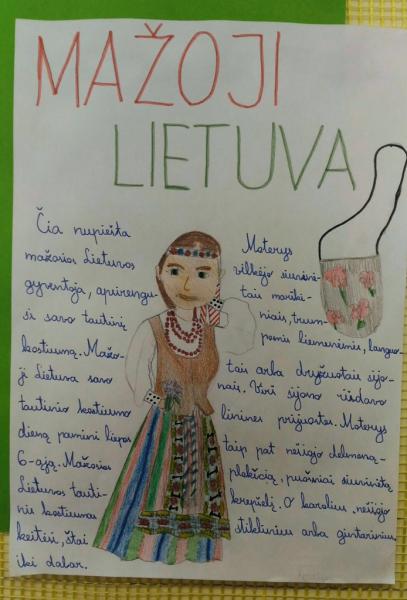 MAŽOJI
LIETUVA
Čia nupiešta
mažosios Lietuvos
gyventoja, apsirengu-
si savo tautinį
kostiumą. Mažo-
ji Lietuva savo
tautinio kostiumo
dieną paminį liepos
6-ąją. Mažosios
Lietuvos tauti-
nis kostiumas
keitėsi, štai
iki dabar.
Moterys
vilkėjo siuvinė-
tais marški-
niais, trum-
pomis liemenėmis, languo-
tais arba dryžuotais sijo-
nais. Virš sijono rišdavo
linines prijuostes. Moterys
taip pat nešiojo delmoną-
plokščią, puošniai siuvinėtą
krepšelį. O karolius nešiojo
stiklinius arba gintarinius.